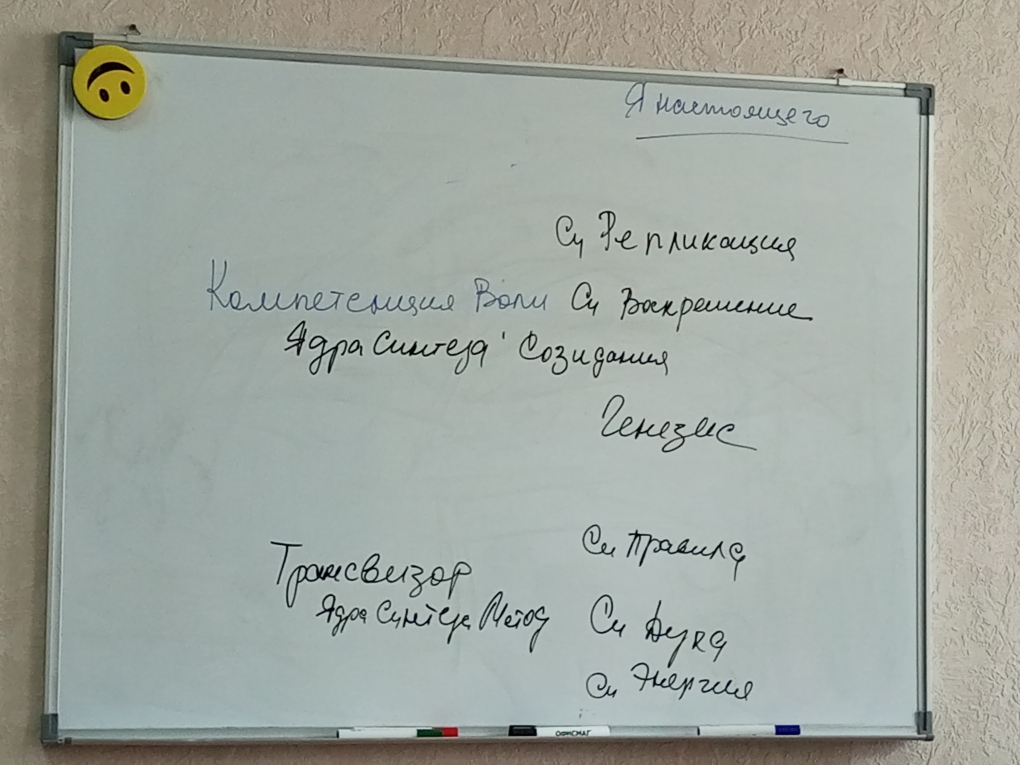 Я настоящего
Си Репликация
Компетенция Воли Си Воскрешение
Ядра Синтеза Созидания
Генезис
Си Правила
Трансвизор
Ядра Синтеза Метод Си Духа
Си Энергия
ОФИСМАГ